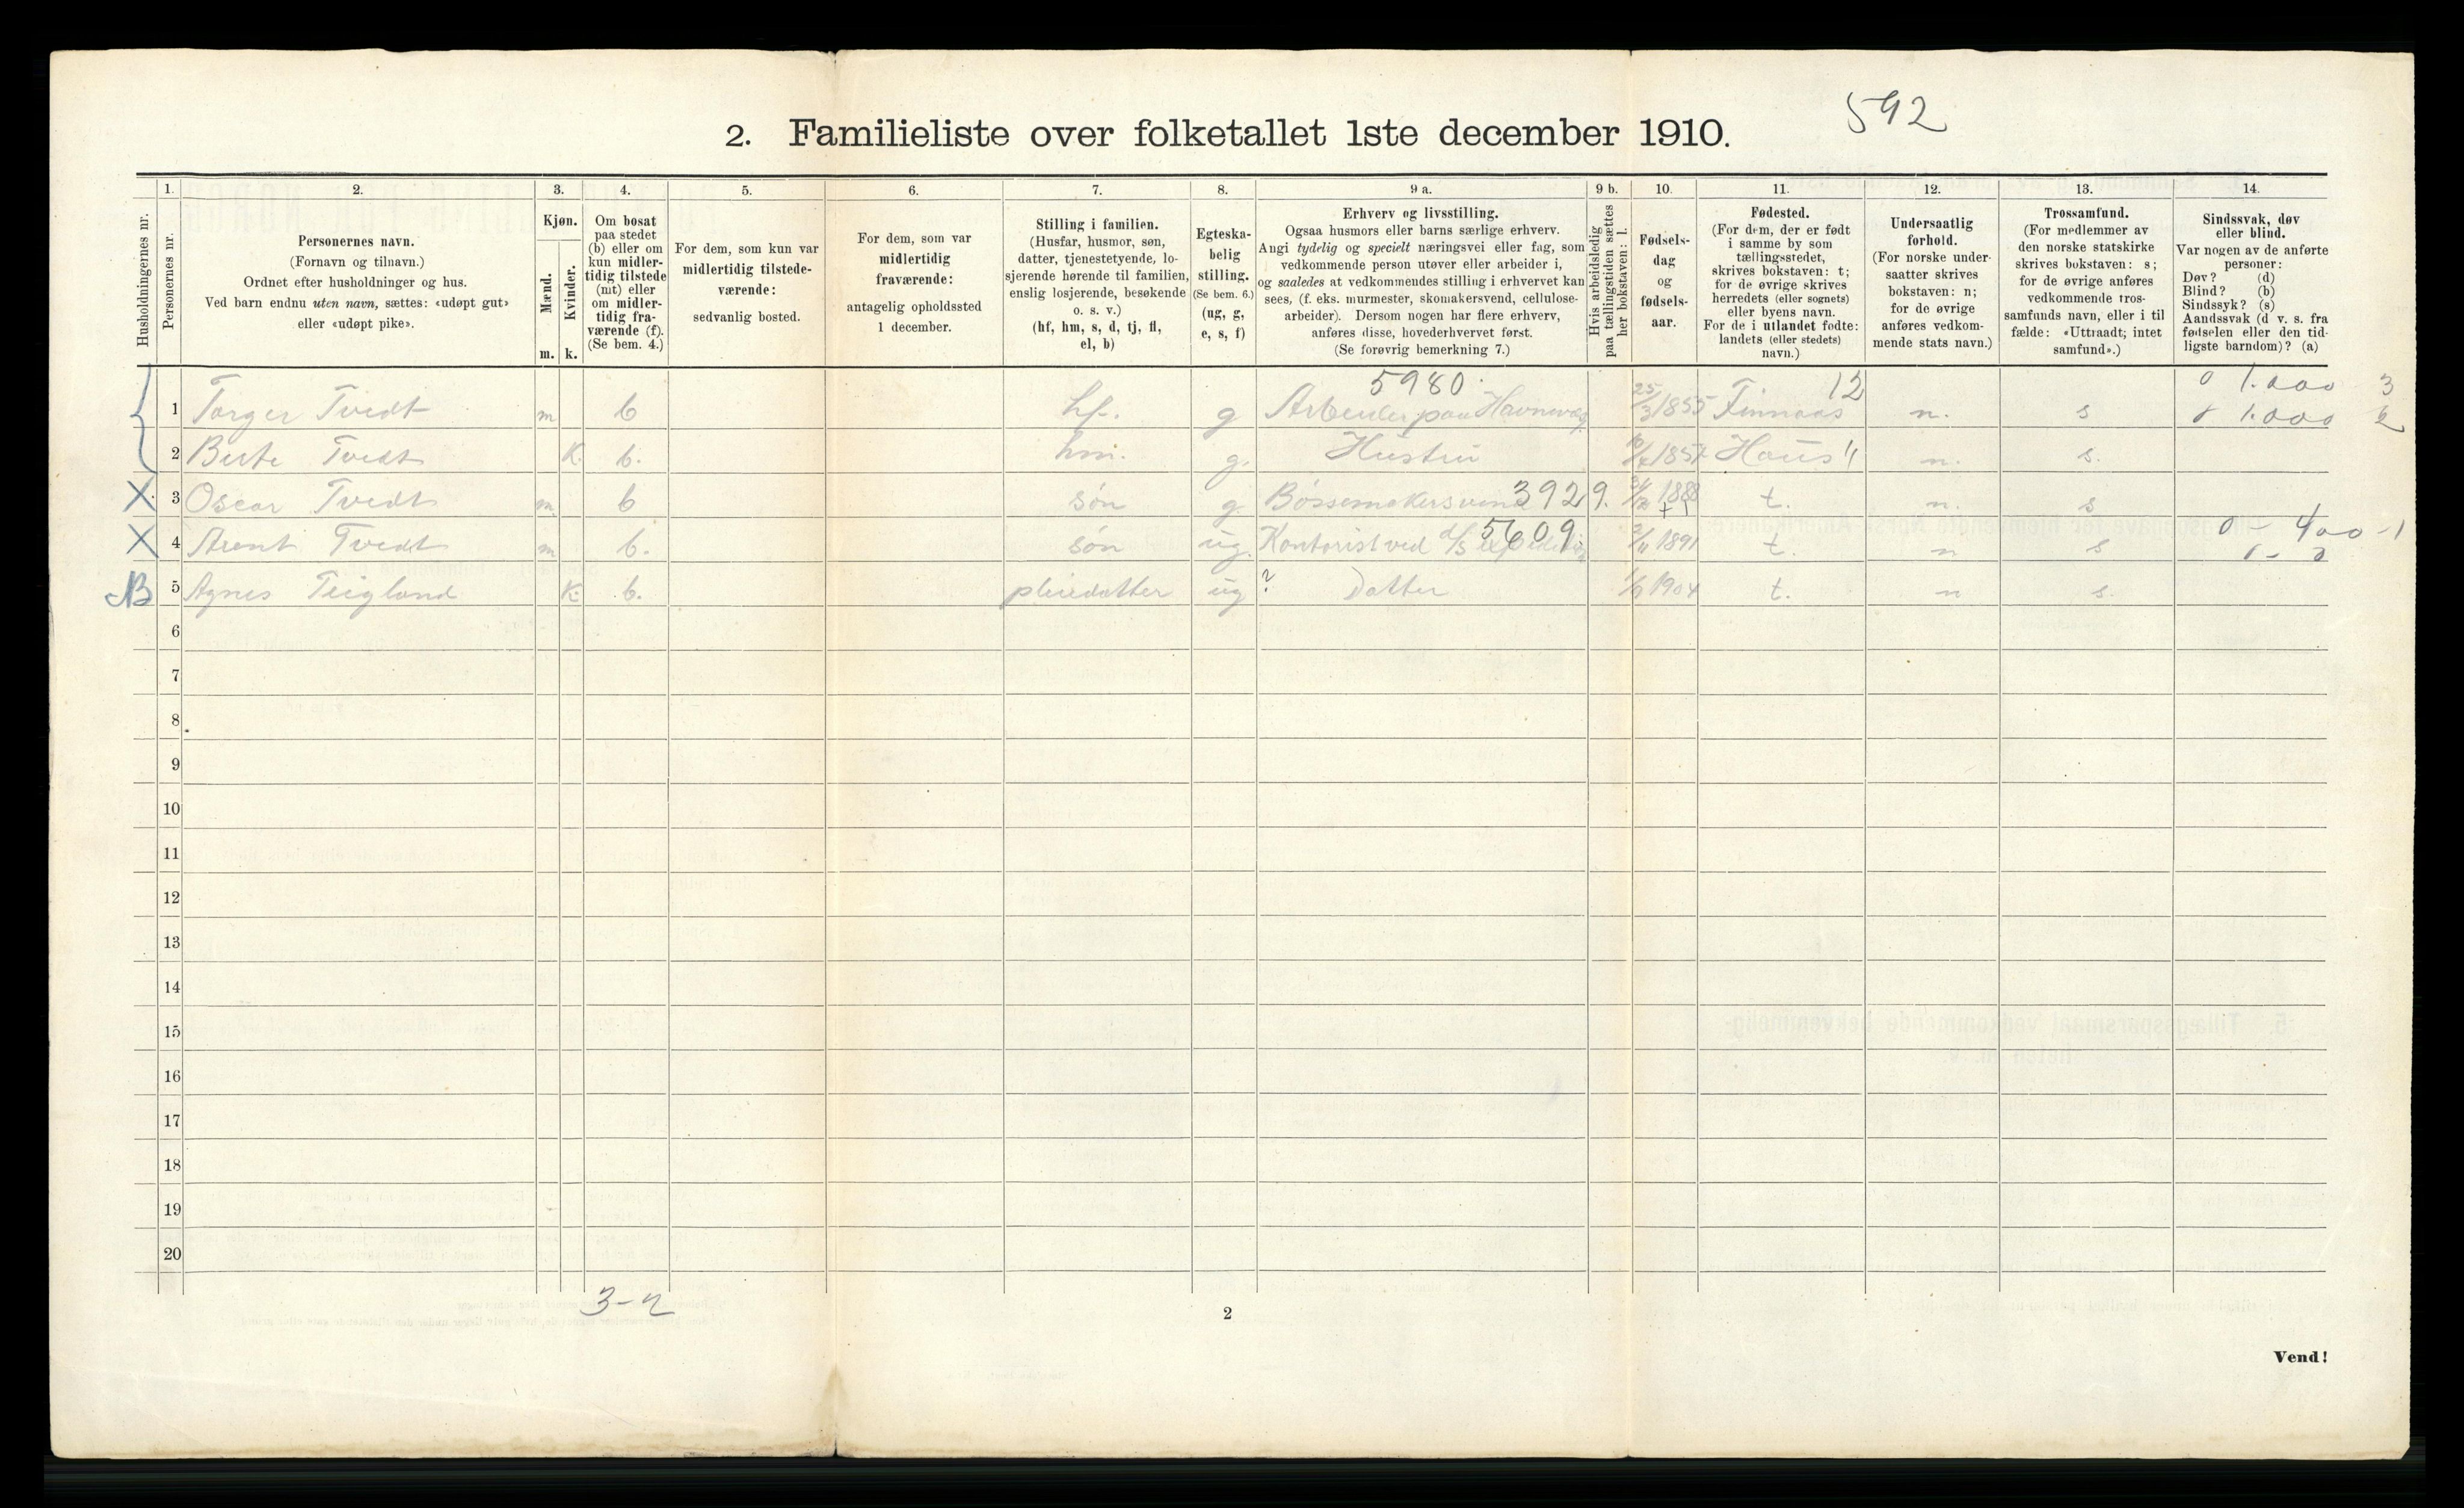 592
2. Familieliste over folketallet 1ste december 1910.
1. 2. 3. 4. 5. 6. 7. 8. 9 a. 9 b. 10. 11. 12. 13. 14.
Husholdningernes nr.
Personernes nr.
Personernes navn.
(Fornavn og tilnavn.)
Ordnet efter husholdninger og hus.
Ved barn endnu uten navn, sættes: «udøpt gut»
eller «udøpt pike».
Kjøn.
Mænd.
Kvinder.
m. k.
Om bosat
paa stedet
(b) eller om
kun midler-
tidig tilstede
(mt) eller
om midler-
tidig fra-
værende (f).
(Se bem. 4.)
For dem, som kun var
midlertidig tilstede-
værende:
sedvanlig bosted.
For dem, som var
midlertidig
fraværende:
antagelig opholdssted
1 december.
Stilling i familien.
(Husfar, husmor, søn,
datter, tjenestetyende, lo-
sjerende hørende til familien,
enslig losjerende, besøkende
o. s. v.)
(hf, hm, s, d, tj, fl,
el, b)
Egteska-
belig
stilling.
(Se bem. 6.)
(ug, g,
e, s, f)
Erhverv og livsstilling.
Ogsaa husmors eller barns særlige erhverv.
Angi tydelig og specielt næringsvei eller fag, som
vedkommende person utøver eller arbeider i,
og saaledes at vedkommendes stilling i erhvervet kan
sees, (f. eks. murmester, skomakersvend, cellulose-
arbeider). Dersom nogen har flere erhverv,
anføres disse, hovederhvervet først.
(Se forøvrig bemerkning 7.)
Hvis arbeidsledig
paa tællingstiden sættes
her bokstaven: l.
Fødsels-
dag
og
fødsels-
aar.
Fødested.
(For dem, der er født
i samme by som
tællingsstedet,
skrives bokstaven: t;
for de øvrige skrives
herredets (eller sognets)
eller byens navn.
For de i utlandet fødte:
landets (eller stedets)
navn.)
Undersaatlig
forhold.
(For norske under-
saatter skrives
bokstaven: n;
for de øvrige
anføres vedkom-
mende stats navn.)
Trossamfund.
(For medlemmer av
den norske statskirke
skrives bokstaven: s;
for de øvrige anføres
vedkommende tros-
samfunds navn, eller i til
fælde: «Uttraadt; intet
samfund».)
Sindssvak, døv
eller blind.
Var nogen av de anførte
personer:
Døv? (d)
Blind? (b)
Sindssyk? (s)
Aandssvak (d v. s. fra
fødselen eller den tid-
ligste barndom)? (a)
5980 12 0 1.000 3
1 Torger Tvedt m b hf. g Arbeider paa Havnevæs. 25/3 1855 Finnaas n. s 1.000 2
2 Berte Tvedt K. b. hm. g. Hustru 1857 Haus 11 n. s.
X 3 Oscar Tvedt m b søn g Bøssemakersvend 3929. 1888 t. n. s
0 - 400 - 1
X 4 Arent Tvedt m b. søn ug. Kontorist ved d/s expedition 5609 2/11 1891 t. n s
B 5 Agnes Teigland K. b. pleiedatter ug ? Datter 1904 t. n s.
6
7
8
9
10
11
12
13
14
15
16
17
18
19
20
3-2
2
Vend!